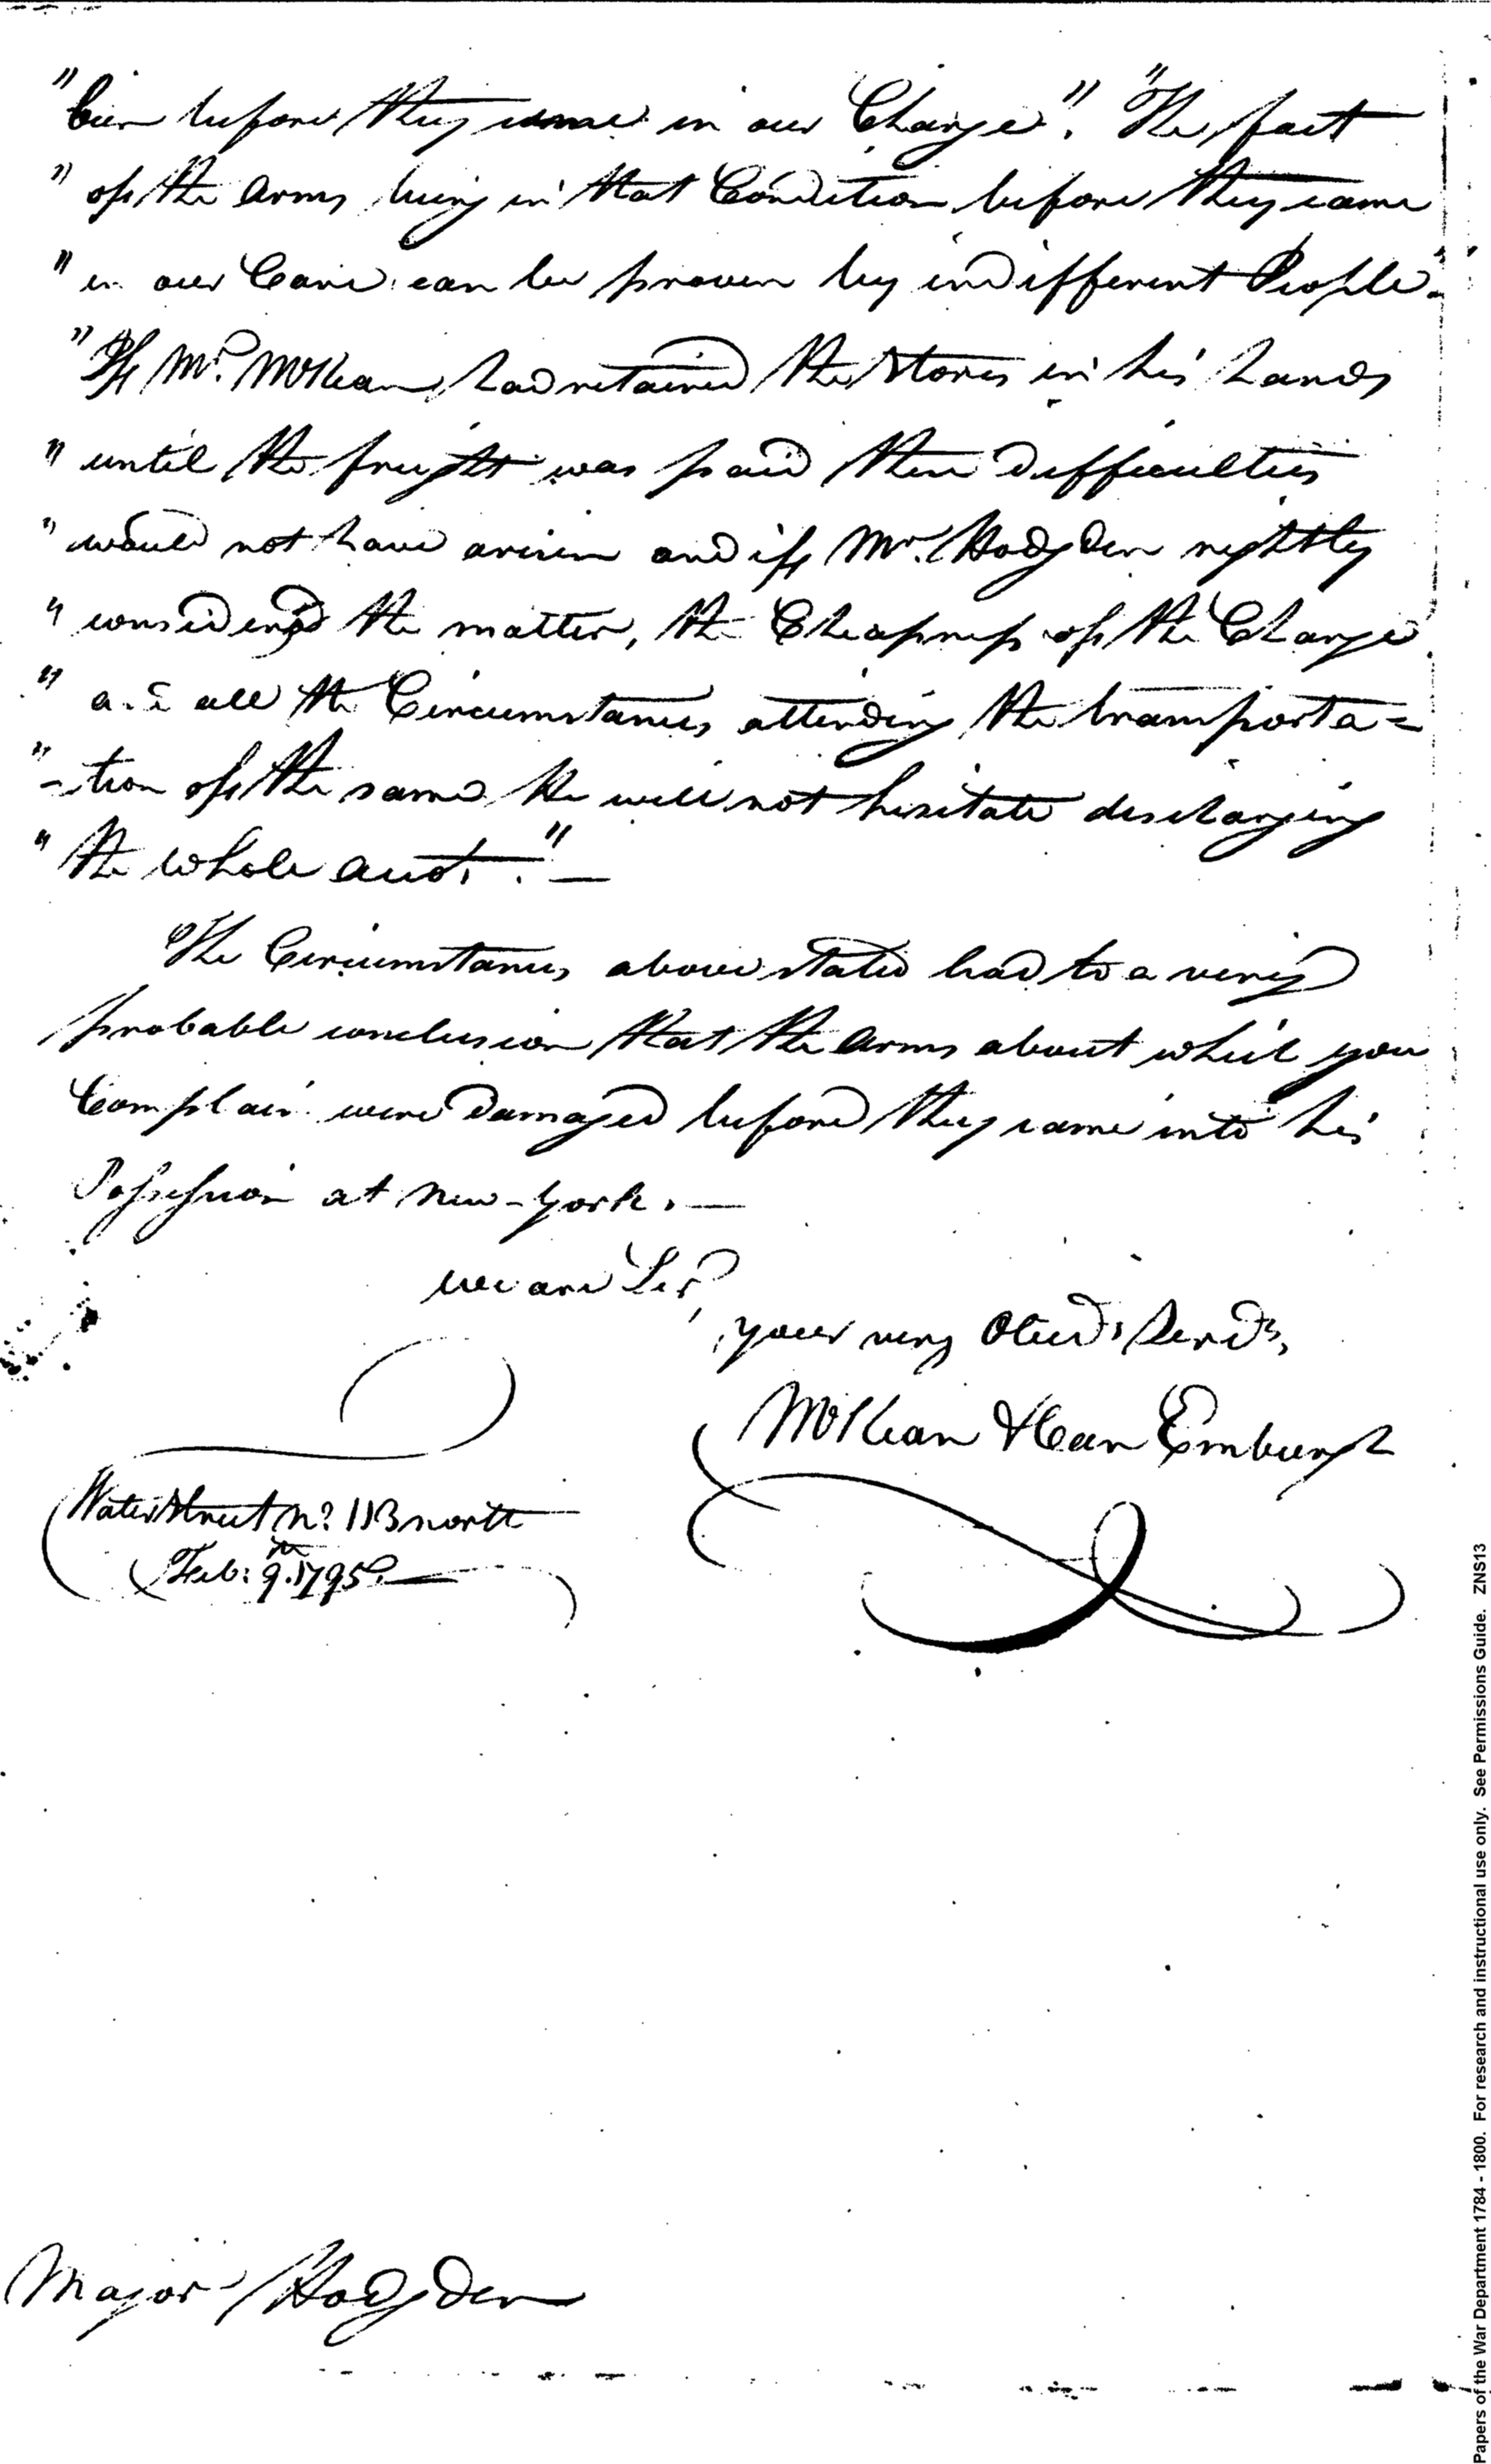 "been before they came in our Charge". "The fact
" of the Arms being in that Condition before they came
" in our Care can be proven by indifferent People.
" If Mr. McKean had retained the Stores in his hands
" until the freight was paid then difficulties
" would not have arisen and if Mr. Hodgden rightly
" considered the matter, the Cheapness of the Charge
" and all the Circumstances attending the transporta=
"-tion of the same he will not hesitate discharging
" the whole acct."—
The Circumstances above stated lead to a very
probable conclusion that the Arms about which you
Complain were Damaged before they came into his
Possession at New-York.—
we are Sir,
your very Obed.t Serv.ts,
McKean & Van Emburgh
Water Street No. 113 north
Feb: 9.th 1795.—
Major Hodgden
Papers of the War Department 1784 - 1800. For research and instructional use only. See Permissions Guide. ZNS13